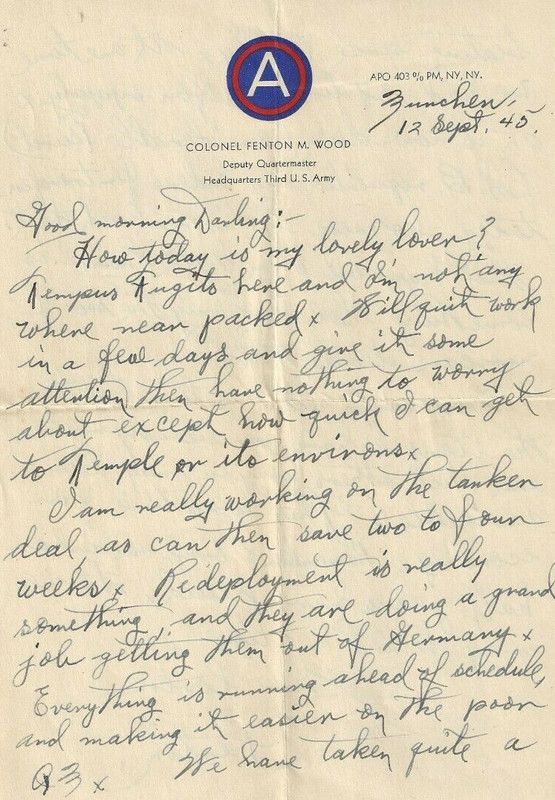 A
APO 403 % PM, NY, NY.
Munchen,
12 Sept. 45.
COLONEL FENTON M. WOOD
Deputy Quartermaster
Headquarters Third U. S. Army
Good morning Darling:-
How today is my lovely lover?
Tempus Fugits here and I'm not any
where near packed x Will quit work
in a few days and give it some
attention then have nothing to worry
about except how quick I can get
to Temple or its environs x
I am really working on the tanker
deal as can then save two to four
weeks x Redeployment is really
something, and they are doing a grand
job getting them out of Germany x
Everything is running ahead of schedule,
and making it easier on the poor
Q3 x We have taken quite a